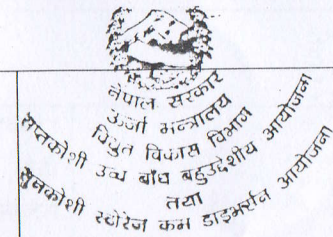 नेपाल सरकार
उर्जा मन्त्रालय
विद्युत विकास विभाग
सप्तकोशी उच्च बाँध बहुउद्देशीय आयोजना
तथा
सुनकोशी स्टोरेज कम डाइभर्सन आयोजना